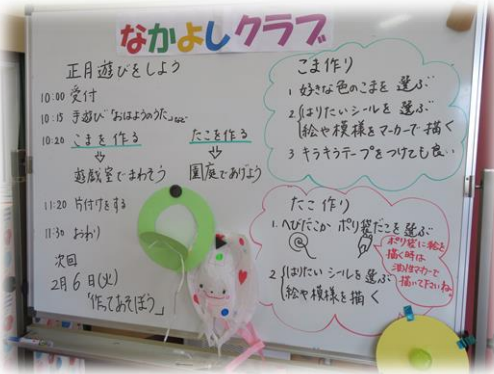 なかよしクラブ
正月遊びをしよう
10:00 受付
10:15 手遊び「おはようのうた」など
10:20 こまを作る たこを作る
⇩ ⇩
遊戯室でまわそう 園庭であげよう
11:20 片付けをする
11:30 おわり
次回
2月6日(火)
「作ってあそぼう」
こま作り
1 好きな色のこまを選ぶ
2 はりたいシールを選ぶ
絵や模様をマーカーで描く
3 キラキラテープをつけても良い
たこ作り
1. へびだこか ポリ袋だこを選ぶ
2 はりたいシールを選ぶ
絵や模様を描く
ポリ袋に絵を
描く時は
油性マーカーで
描いて下さいね。